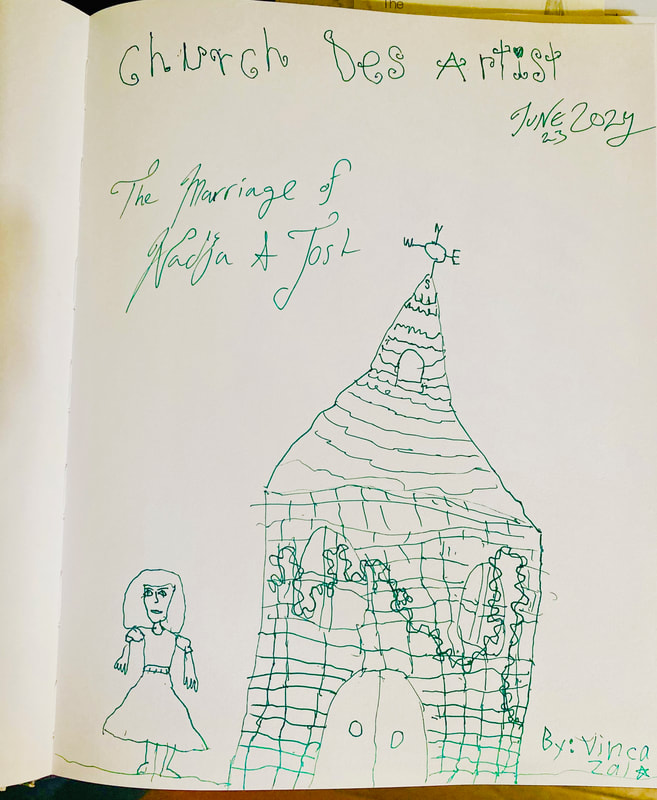 The
Church Des Artist
JUNE 2024
23
The Marriage of
Nadja & Josh
N
W E
S
By: Vinca
Zai